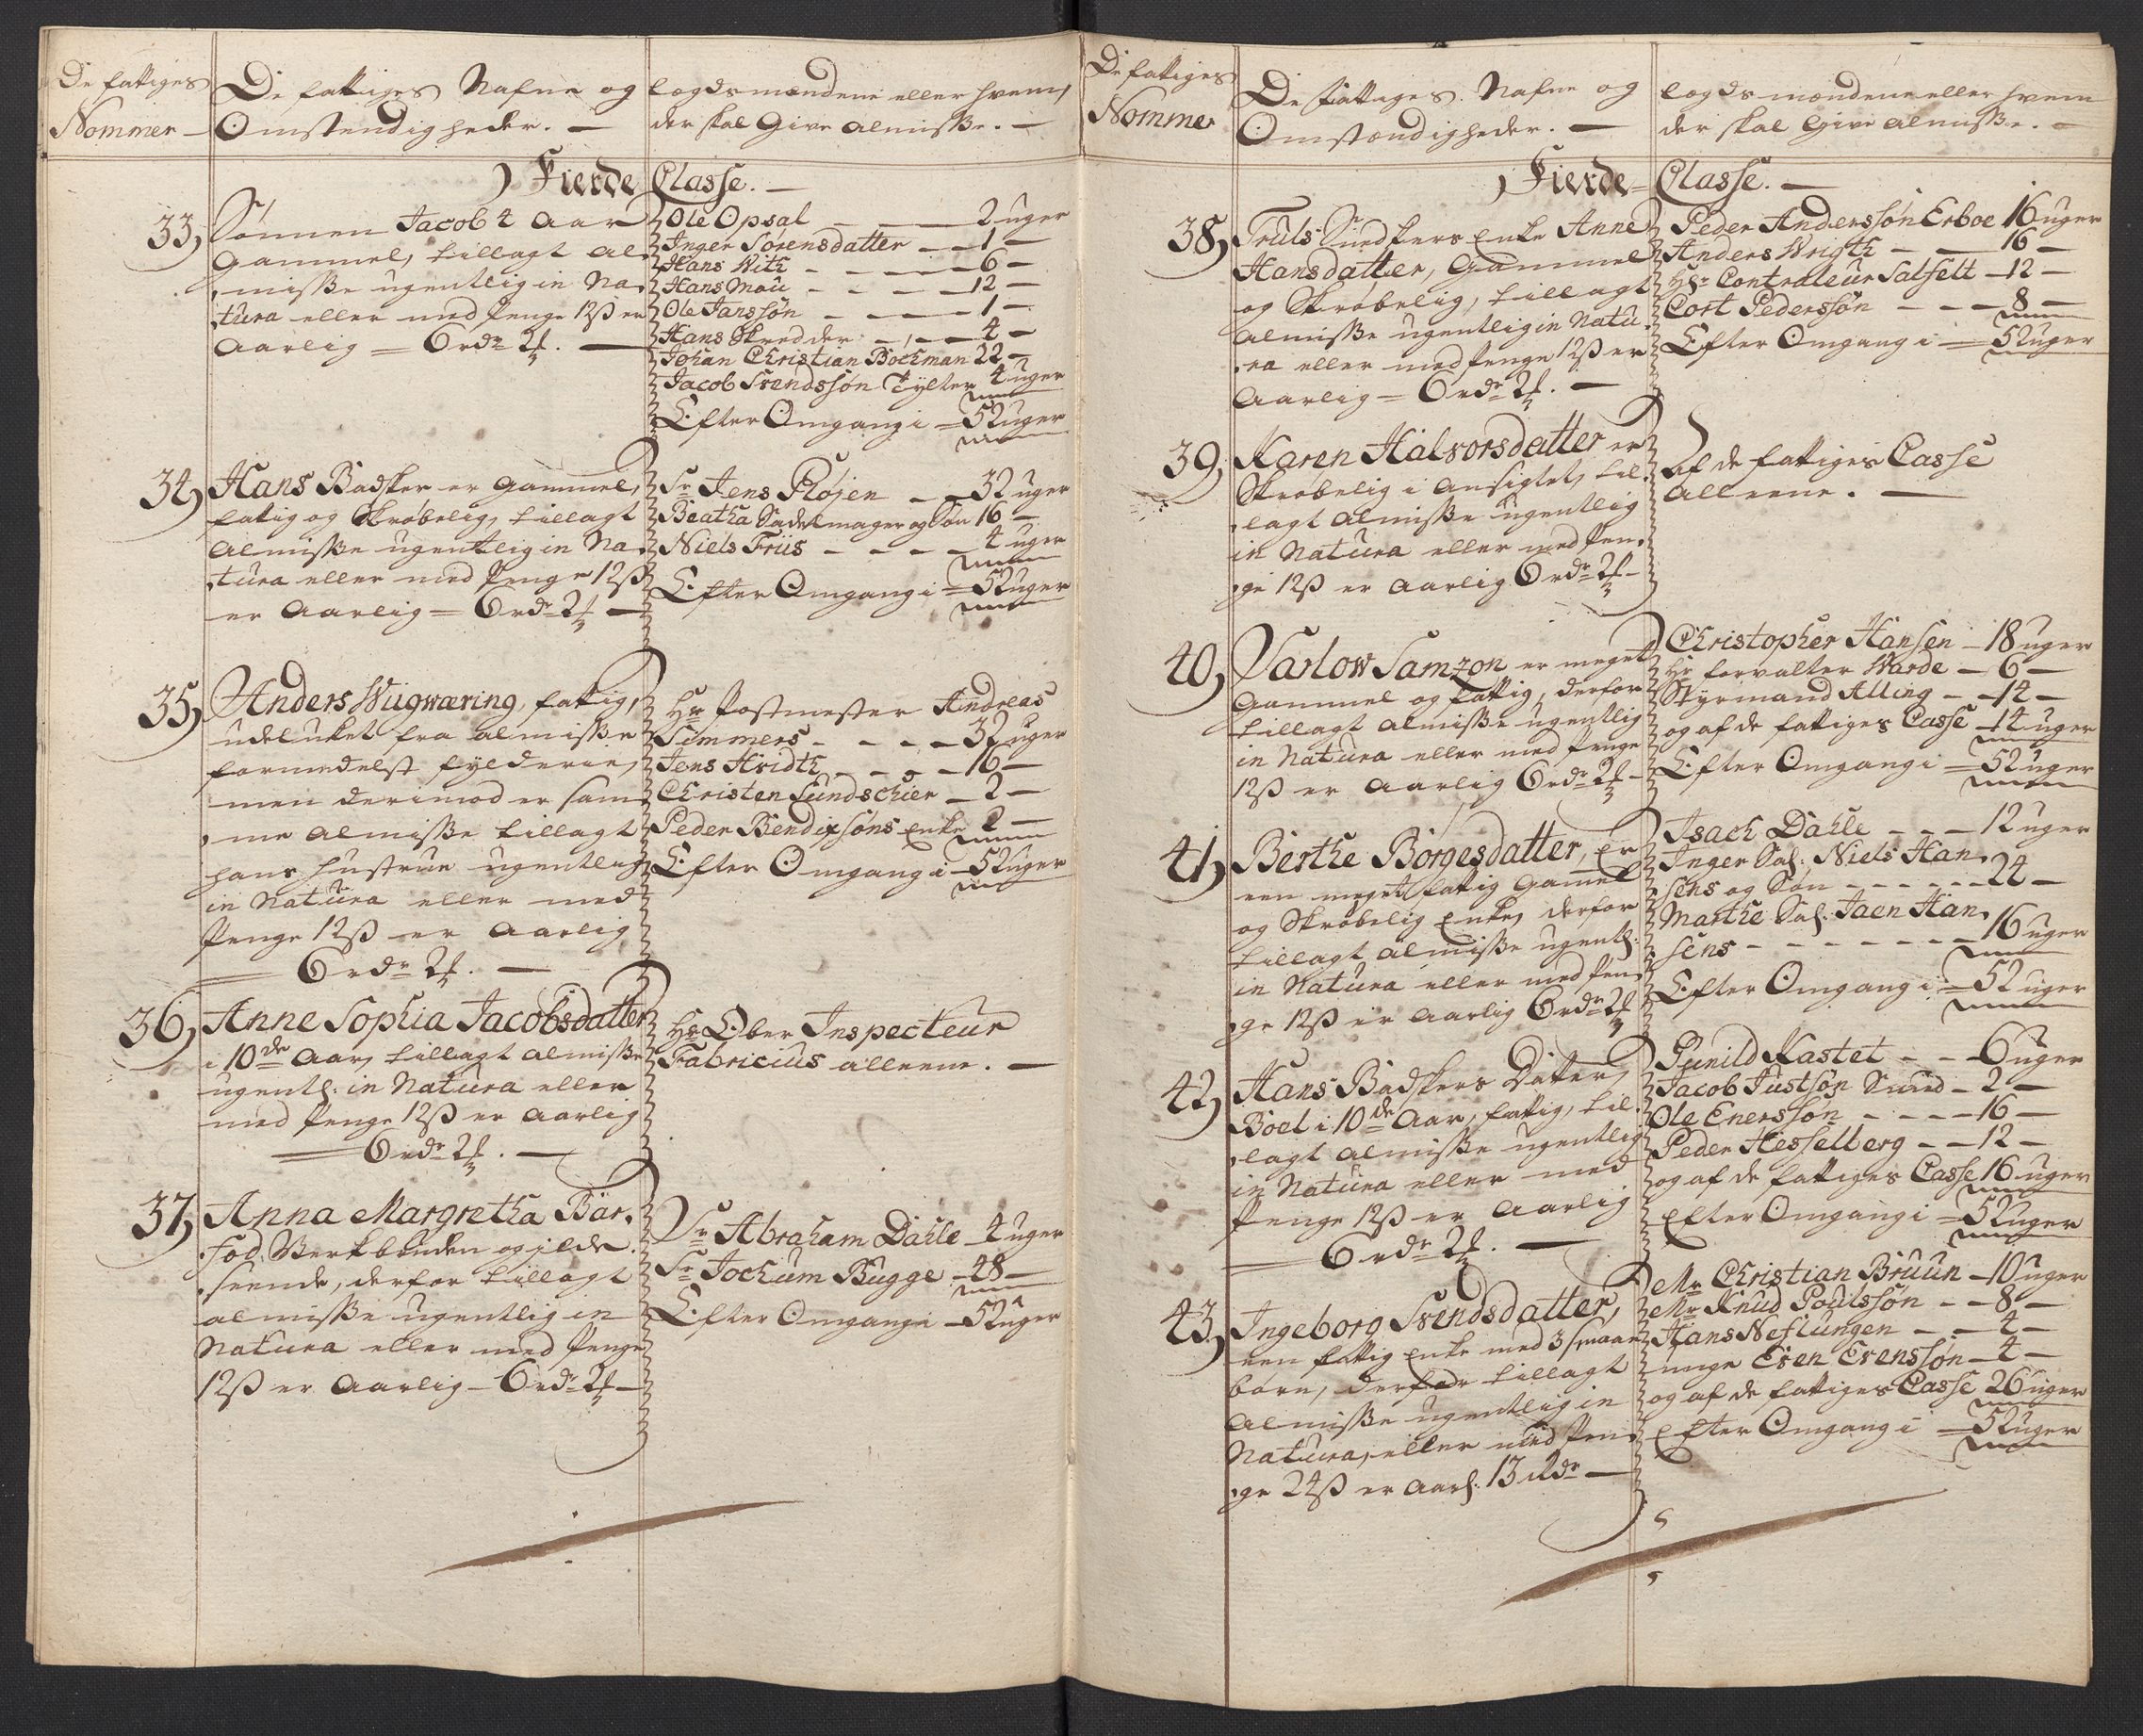 De fattiges
Nommer –
De fattiges Nafne og
Omstendigheder. –
Lægdsmændene eller hvem
der skal Give Almisse. –
Fierde Classe. –
33, Sønnen Jacob 4 Aar
Gammel, tillagt Al-
misse ugentlig in Na-
tura eller med Penge 12ß er
Aarlig = 6 rdr 2
Ole Opsal – – 2 uger
Inger Sørensdatter – – 1 –
Hans With – – – 6 –
Hans Mou – – – 12 –
Ole Janssøn – – – 1 –
Hans Skredder – – 4 –
Johan Christian Bochman 22 –
Jacob Svendssøn Tÿlter 4 uger
Efter Omgang i = 52 uger
34, Hans Badsker er Gammel,
fattig og Skrøbelig, tillagt
Almisse ugentlig in Na-
tura eller med Penge 12ß
er Aarlig = 6 rdr 2
Sr Jens Pløjen – – 32 uger
Beatha Sadelmager og Søn 16 –
Niels Friis – – – – 4 uger
Efter Omgang i = 52 uger
35, Anders Wiigwæring, fattig,
udelukt fra Almisse
formedelst fylderie,
men derimod er sam-
me Almisse tillagt
hans Hustrue ugentlig
in Natura eller med
Penge 12ß er Aarlig
= 6 rdr 2
Hr Postmester Andreas
Simmers – – – – 32 uger
Jens Hvidth – – – 16 –
Christen Sundschier – 2 –
Peder Bendixsøns Enke 2 –
Efter Omgang i – 52 uger
36, Anne Sophia Jacobsdatter
i 10de Aar, tillagt Almisse
ugentl. in Natura eller
med Penge 12ß er Aarlig
= 6 rdr 2
Hr Ober Inspecteur
Fabricius alleene. –
37, Anna Margretha Bär-
fod, Verkbruden og ilde
seende, derfor tillagt
Almisse ugentlig in
Natura eller med Penge
12ß er Aarlig – 6 rdr 2
Sr Abraham Dahle – 4 uger
Sr Jochum Bugge – 48 –
Efter Omgang i – 52 uger
De fattiges
Nommer
De fattiges Nafne og
Omstændigheder. –
Lægdsmændene eller hvem
der skal Give Almisse. –
Fierde = Classe. –
38, Truls Sundkers Enke Anne
Hansdatter, Gammel
og Skrøbelig, tillagt
Almisse ugentlig in Natu-
ra eller med Penge 12ß er
Aarlig = 6 rdr 2
Peder Anderssøn Erboe 16 uger
Anders Wrigth – – – 16 –
Hr Contrateur Salfelt – 12 –
Cort Pederssøn – – – 8 –
Efter Omgang i = 52 uger
39, Karen Halvorsdatter er
Skrøbelig i Ansigtet, til-
lagt Almisse ugentlig
in Natura eller med Pen-
ge 12ß er Aarlig 6 rdr 2
Af de fattiges Casse
Alleene. –
40, Varlow Samzon er meget
Gammel og fattig, derfor
tillagt Almisse ugentlig
in Natura eller med Penge
12ß er Aarlig 6 rdr 2
Christopher Hansen – 18 uger
Hr forvalter Warde – 6 –
Styrmand Alling – – 14 –
og af de fattiges Casse – 14 uger
Efter Omgang i = 52 uger
41, Berthe Børgesdatter, er
een meget fattig Gamel
og Skrøbelig Enke, derfor
tillagt Almisse ugentl.
in Natura eller med Pen-
ge 12ß er Aarlig 6 rdr 2
Isach Dahle – – – 12 uger
Inger Sal. Niels Han-
sens og Søn – – – – 24 –
Marthe Sal. Jaen Han-
sens – – – – – – – 16 uger
Efter Omgang i = 52 uger
42, Hans Badskers Datter
Boel i 10de Aar, fattig, til-
lagt Almisse ugentlig
in Natura eller med
Penge 12ß er Aarlig
= 6 rdr 2
Gunild Kastet – – – 6 uger
Jacob Justsøn Sund – 2 –
Ole Enerssøn – – – – 16 –
Peder Hesselberg – – 12 –
og af de fattiges Casse 16 uger
Efter Omgang i = 52 uger
43, Ingeborg Svendsdatter,
een fattig Enke med 3 smaae
børn, derfor tillagt
Almisse ugentlig in
Natura, eller med Pen-
ge 24ß er Aarl. 13 Rdr –
Mr Christian Bruun – 10 uger
Mr Knud Poulssøn – – 8 –
Hans Neflungen – – – 4 –
unge Even Evenssøn – 4 –
og af de fattiges Casse 26 uger
Efter Omgang i = 52 uger